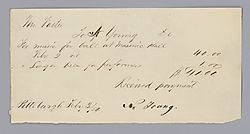 Wm
To A Young Dr
For music for ball at Masonic Hall
Feby 2 40.00
for performers 1.00
$41.00
Received payment
Pittsburgh Feby 3/
A. Young.